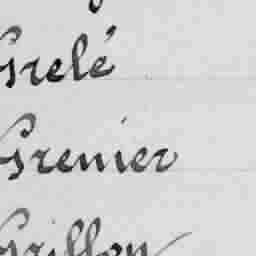 Grelé
Grenier
Grillon